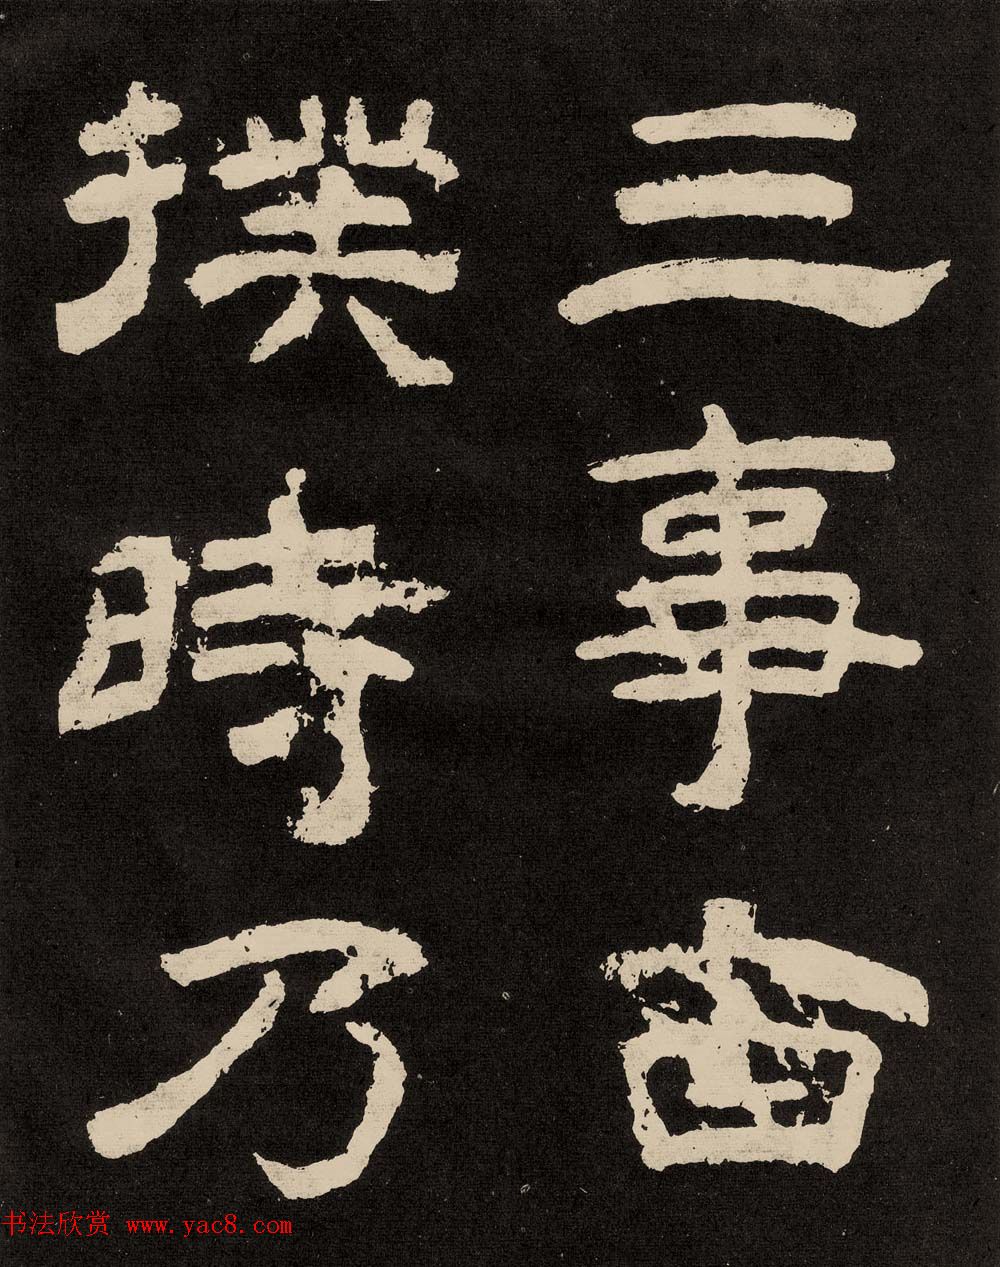 三事
撲時乃
书法欣赏 www.yac8.com